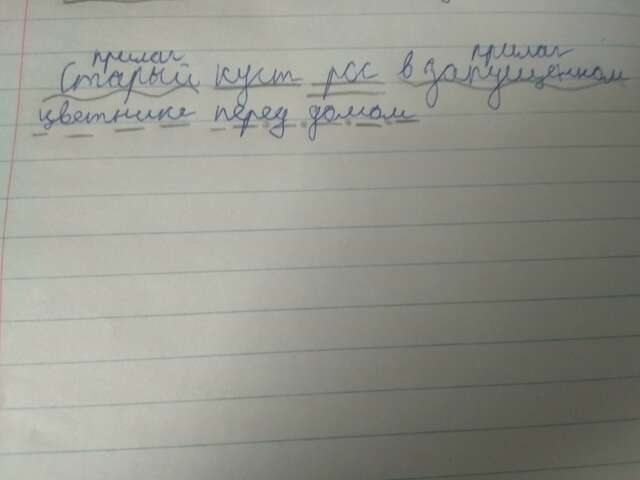 прилаг прилаг
Старый куст рос в запущенном
цветнике перед домом